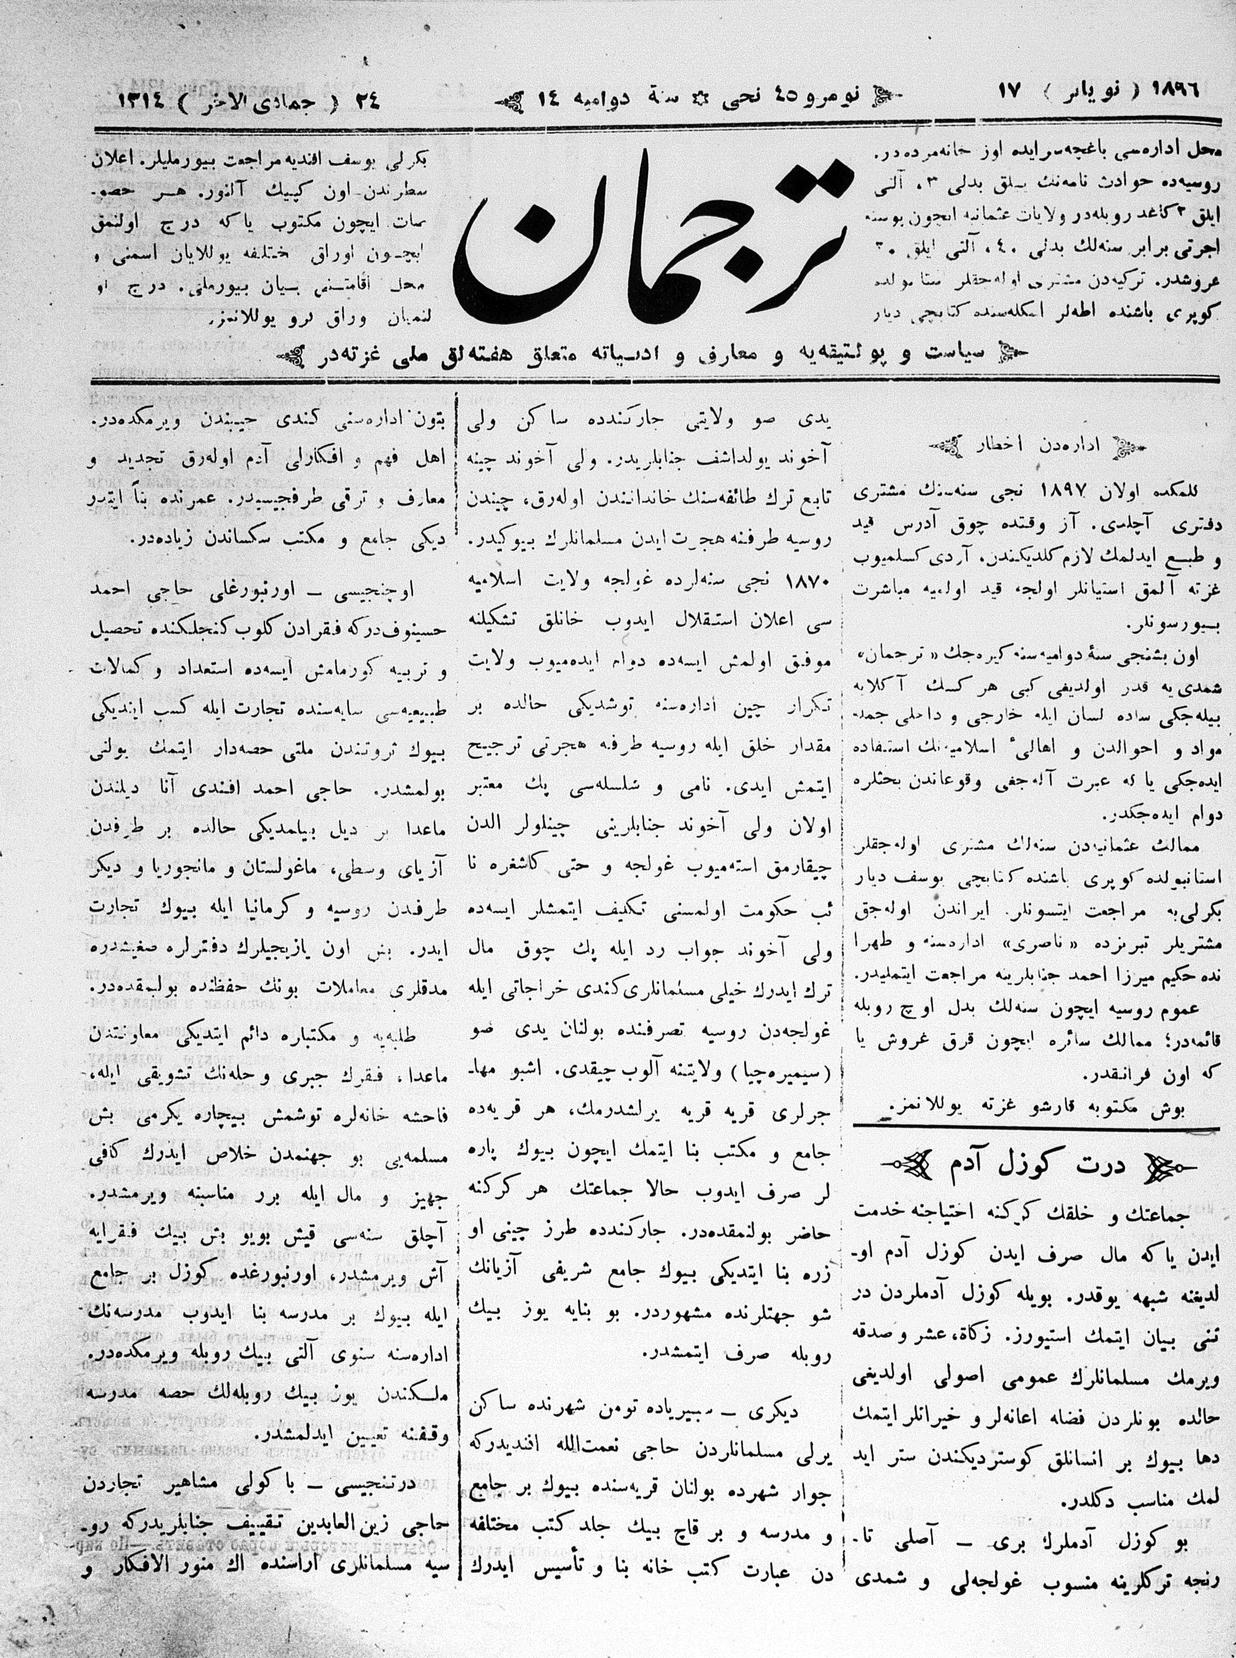 ١٨٩٦ ( نويابر ) ١٧
نومرو ٤٥ نجى ۞ سنهٔ دواميه ١٤
٢٤ ( جمادى الآخر ) ١٣١٤
محل اداره‌سى باغچه‌سرايده اوز خانه‌مزده‌در.
روسيه‌ده حوادث نامه‌نك ييللق بدلى ٣، آلتى
ايلق ٢ كاغد روبله‌در ولايات عثمانيه ايچون پوسته
اجرتى برابر سنه‌لك بدلى ٤٠، آلتى ايلق ٣٠
غروشدر. تركيه‌دن مشترى اوله‌جقلر ستانبولده
كوپرى باشنده اطه‌لر اسكله‌سنده كتابچى ديار
ترجمان
بكرلى يوسف افنديه مراجعت بيورمليلر. اعلان
سطرندن اون كپيك آلنور. هر خصو-
سات ايچون مكتوب ياكه درج اولنمق
ايچون اوراق مختلفه يوللايان اسمنى و
محل اقامتنى بيان بيورملى. درج او
لنميان وراق كرو يوللانمز.
سياست و پولتيقه‌يه و معارف و ادبياته متعلق هفته‌لق ملى غزته‌در
اداره‌دن اخطار
كلمكده اولان ١٨٩٧ نجى سنه‌سنك مشترى
دفترى آچلدى. آز وقتده چوق آدرس قيد
و طبع ايدلمك لازم كلديكندن، آردى كسلميوب
غزته آلمق استيانلر اولجه قيد اولميه مباشرت
بيورسونلر.
اون بشنجى سنهٔ دواميه‌سنه كيره‌جك «ترجمان»
شمدى‌يه قدر اولديغى كبى هر كسك آكلايه
بيله‌جكى ساده لسان ايله خارجى و داخلى جمله
مواد و احوالدن و اهالىٔ اسلاميه‌نك استفاده
ايده‌جكى يا كه عبرت آله‌جغى وقوعاندن بحثلره
دوام ايده‌جكدر.
ممالك عثمانيه‌دن سنه‌لك مشترى اوله‌جقلر
استانبولده كوپرى باشنده كتابچى يوسف ديار
بكرلى‌يه مراجعت ايتسونلر. ايراندن اوله‌جق
مشتريلر تبريزده «ناصرى» اداره‌سنه و طهرا
نده حكيم ميرزا احمد جنابلرينه مراجعت ايتمليدر.
عموم روسيه ايچون سنه‌لك بدل اوچ روبله
قائمه‌در؛ ممالك سائره ايچون قرق غروش يا
كه اون فرانقدر.
بوش مكتوبه قارشو غزته يوللانمز.
درت كوزل آدم
جماعتك و خلقك كركنه احتياجنه خدمت
ايدن ياكه مال صرف ايدن كوزل آدم او-
لديغنه شبهه يوقدر. بويله كوزل آدملردن در
تنى بيان ايتمك استيورز. زكاة، عشر و صدقه
ويرمك مسلمانلرك عمومى اصولى اولديغى
حالده بونلردن فضله اعانه‌لر و خيراتلر ايتمك
دها بيوك بر انسانلق كوسترديكندن ستر ايد
لمك مناسب دكلدر.
بو كوزل آدملرك برى ــ آصلى تا-
رنجه تركلرينه منسوب غولجه‌لى و شمدى
يدى صو ولايتى جاركندده ساكن ولى
آخوند يولداشف جنابلريدر. ولى آخوند چينه
تابع ترك طائفه‌سنك خاندانندن اوله‌رق، چيندن
روسيه طرفنه هجرت ايدن مسلمانلرك بيوكيدر.
١٨٧٠ نجى سنه‌لرده غولجه ولايت اسلاميه
سى اعلان استقلال ايدوب خانلق تشكيلنه
موفق اولمش ايسه‌ده دوام ايده‌ميوب ولايت
تكرار چين اداره‌سنه توشديكى حالده بر
مقدار خلق ايله روسيه طرفنه هجرتى ترجيح
ايتمش ايدى. نامى و سلسله‌سى پك معتبر
اولان ولى آخوند جنابلرينى چينلولر الدن
چيقارمق استه‌ميوب غولجه و حتى كاشغره نا
ئب حكومت اولمسنى تكليف ايتمشلر ايسه‌ده
ولى آخوند جواب رد ايله پك چوق مال
ترك ايدرك خيلى مسلمانلرى كندى خراجاتى ايله
غولجه‌دن روسيه تصرفنده بولنان يدى صو
(سيميره‌چيا) ولايتنه آلوب چيقدى. اشبو مها-
جرلرى قريه قريه يرلشدرمك، هر قريه‌ده
جامع و مكتب بنا ايتمك ايچون بيوك پاره
لر صرف ايدوب حالا جماعتك هر كركنه
حاضر بولنمقده‌در. جاركندده طرز چينى او
زره بنا ايتديكى بيوك جامع شريفى آزيانك
شو جهتلرنده مشهوردر. بو بنايه يوز بيك
روبله صرف ايتمشدر.
ديكرى ــ سبيرياده تومن شهرنده ساكن
يرلى مسلمانلردن حاجى نعمت‌الله افنديدركه
جوار شهرده بولنان قريه‌سنده بيوك بر جامع
و مدرسه و بر قاچ بيك جلد كتب مختلفه
دن عبارت كتب خانه بنا و تأسيس ايدرك
بتون اداره‌سنى كندى جيبندن ويرمكده‌در.
اهل فهم و افكارلى آدم اوله‌رق تجديد و
معارف و ترقى طرفجيسيدر. عمرنده بنا ايتدر
ديكى جامع و مكتب سكساندن زياده‌در.
اوچنجيسى ــ اورنبورغلى حاجى احمد
حسينوف‌دركه فقرادن كلوب كنجلكنده تحصيل
و تربيه كورمامش ايسه‌ده استعداد و كمالات
طبيعيه‌سى سايه‌سنده تجارت ايله كسب ايتديكى
بيوك ثروتندن ملتى حصه‌دار ايتمك يولنى
بولمشدر. حاجى احمد افندى آنا ديلندن
ماعدا بر ديل بيلمديكى حالده بر طرفدن
آزياى وسطى، ماغولستان و مانجوريا و ديكر
طرفدن روسيه و كرمانيا ايله بيوك تجارت
ايدر. بش اون يازيجيلرك دفترلره صغيشدره
مدقلرى معاملات بونك حفظنده بولنمقده‌در.
طلبه‌يه و مكتبلره دائم ايتديكى معاونتندن
ماعدا، فقرك جبرى و حله‌نك تشويقى ايله،
فاحشه خانه‌لره توشمش بيچاره يكرمى بش
مسلمه‌يى بو جهنمدن خلاص ايدرك كافى
جهيز و مال ايله برر مناسبنه ويرمشدر.
آچلق سنه‌سى قيش بويو بش بيك فقرايه
آش ويرمشدر، اورنبورغده كوزل بر جامع
ايله بيوك بر مدرسه بنا ايدوب مدرسه‌نك
اداره‌سنه سنوى آلتى بيك روبله ويرمكده‌در.
ملكندن يوز بيك روبله‌لك حصه مدرسه
وقفنه تعيين ايدلمشدر.
درتنجيسى ــ باكولى مشاهير تجاردن
حاجى زين‌العابدين تقييف جنابلريدركه رو-
سيه مسلمانلرى اراسنده اك منور الافكار و